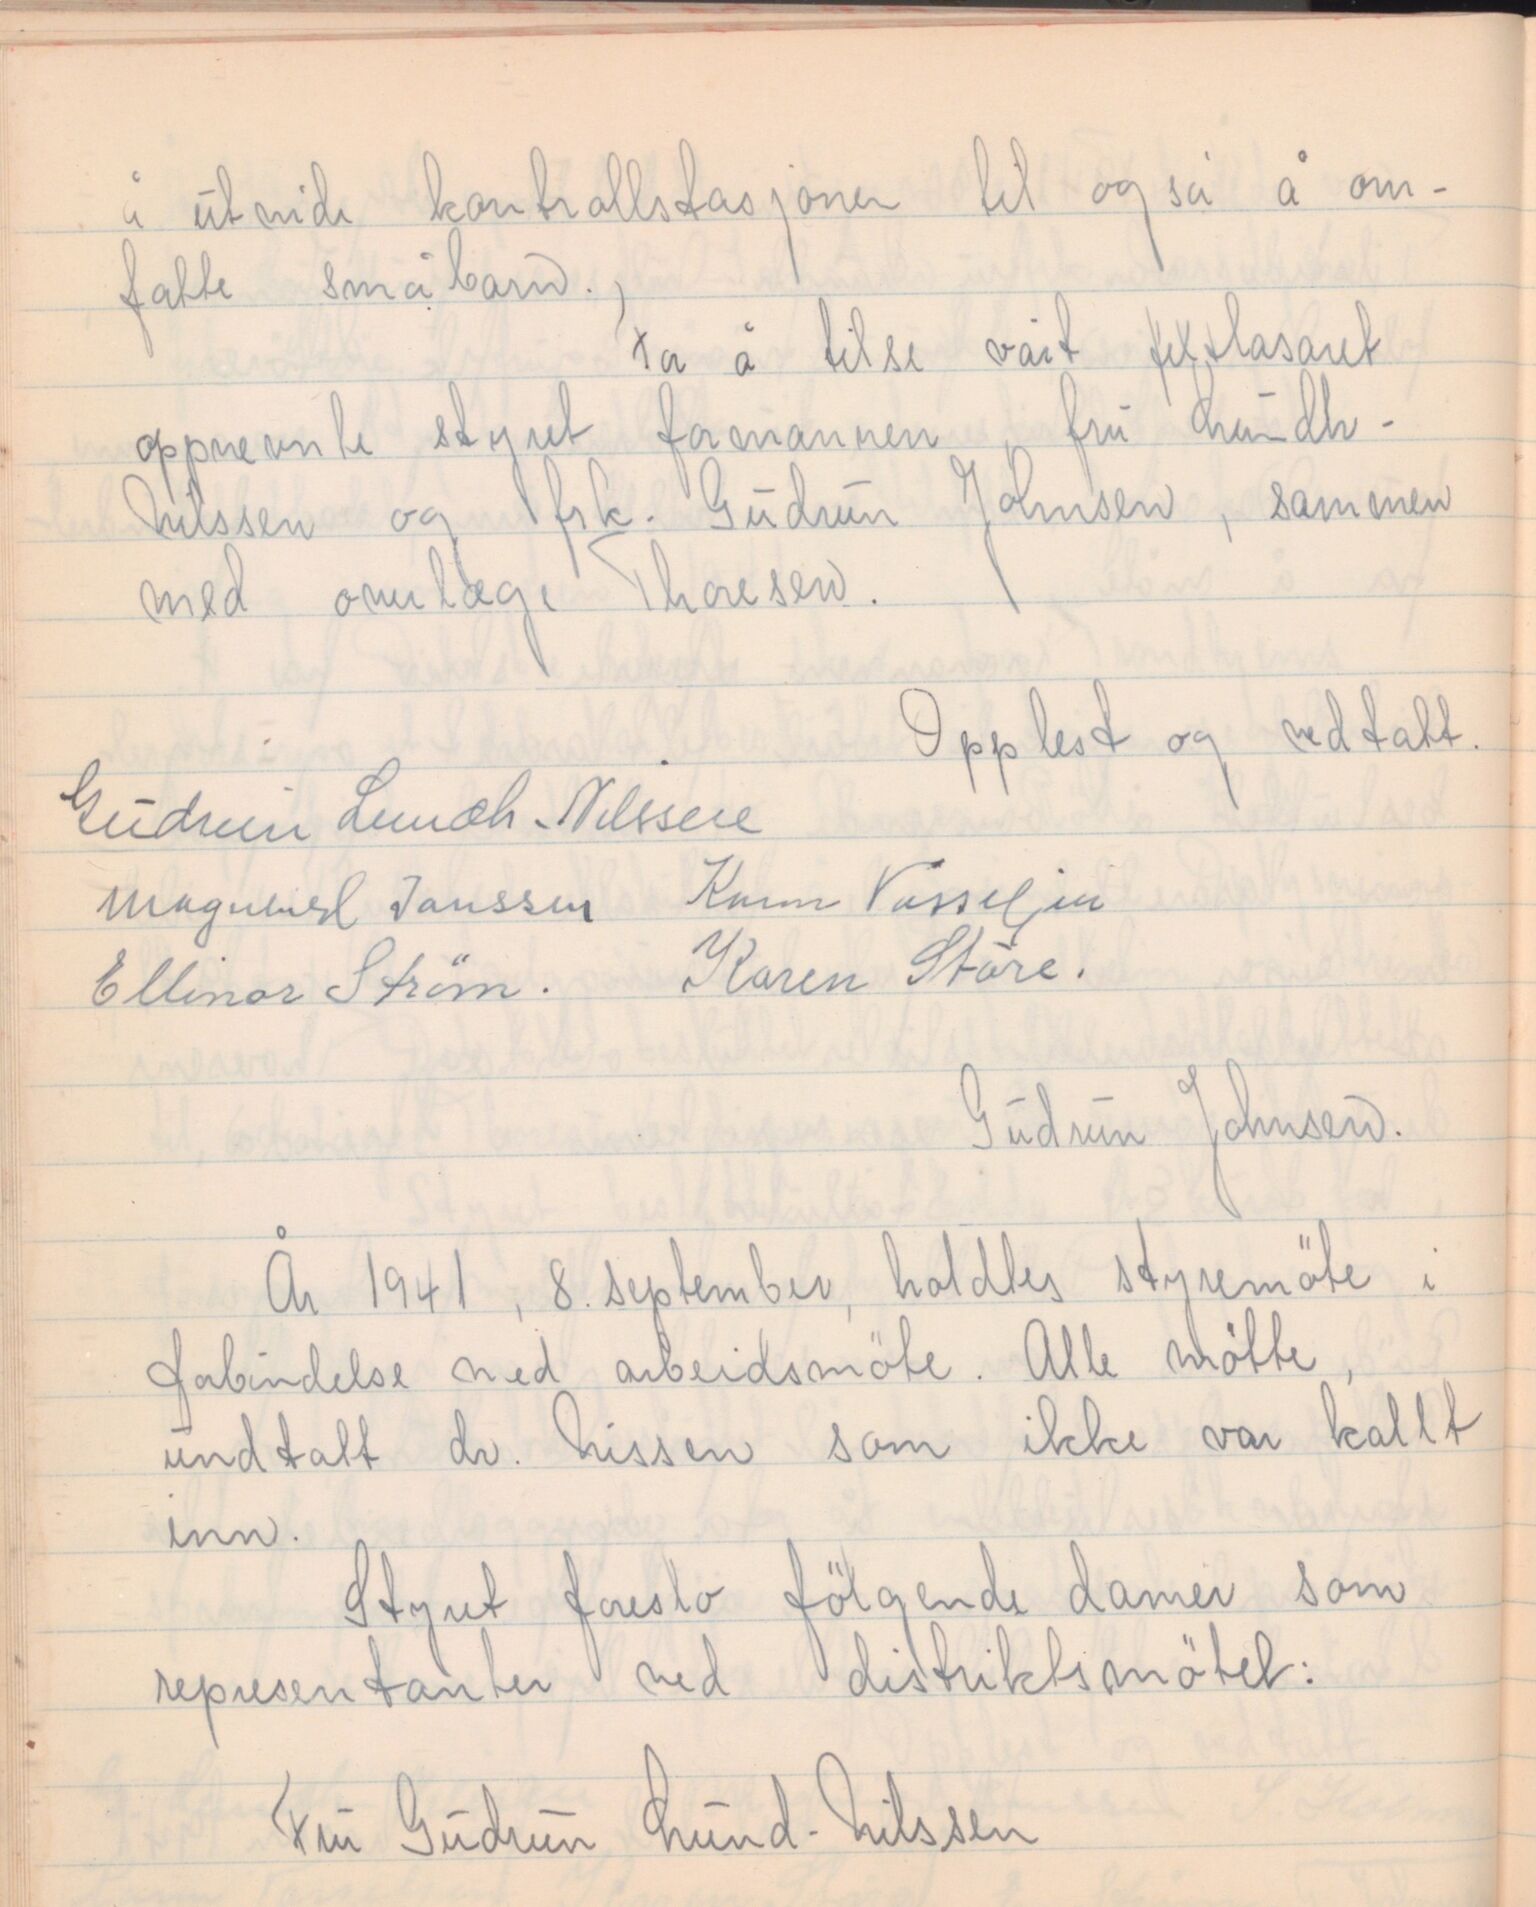 å utvide kontrollstasjonen til også å om-
fatte småbarn.
For å tilse vårt feltlasaret
oppnevnte styret formannen, fru Lundh-
Nilssen og frk. Gudrun Johnsen, sammen
med overlæge Thoresen.
Opplest og vedtatt.
Gudrun Lundh-Nilssen
Magnhild Janssen Karen Vasseljen
Ellinor Ström. Karen Störe.
Gudrun Johnsen.
År 1941, 8. september, holdtes styremöte i
forbindelse med arbeidsmöte. Alle mötte,
undtatt dr. Nissen som ikke var kallt
inn.
Styret foreslo fölgende damer som
representanter ved distriktsmötet:
Fru Gudrun Lund-Nilssen